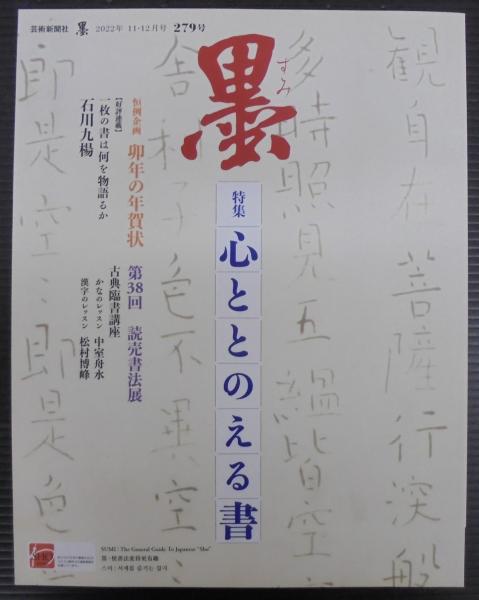 芸術新聞社 墨 2022年 11・12月号 279号
墨
すみ
特集
心ととのえる書
恒例企画 卯年の年賀状
【好評連載】
一枚の書は何を物語るか
石川九楊
第38回 読売書法展
古典臨書講座
かなのレッスン 中室舟水
漢字のレッスン 松村博峰
観自在菩薩行深般
多時照見五緼皆空
舍利子色不異空
即是空〻即是色
SUMI : The General Guide To Japanese "Sho"
墨・使書法変得更有趣
스미 : 서예를 즐기는 잡지